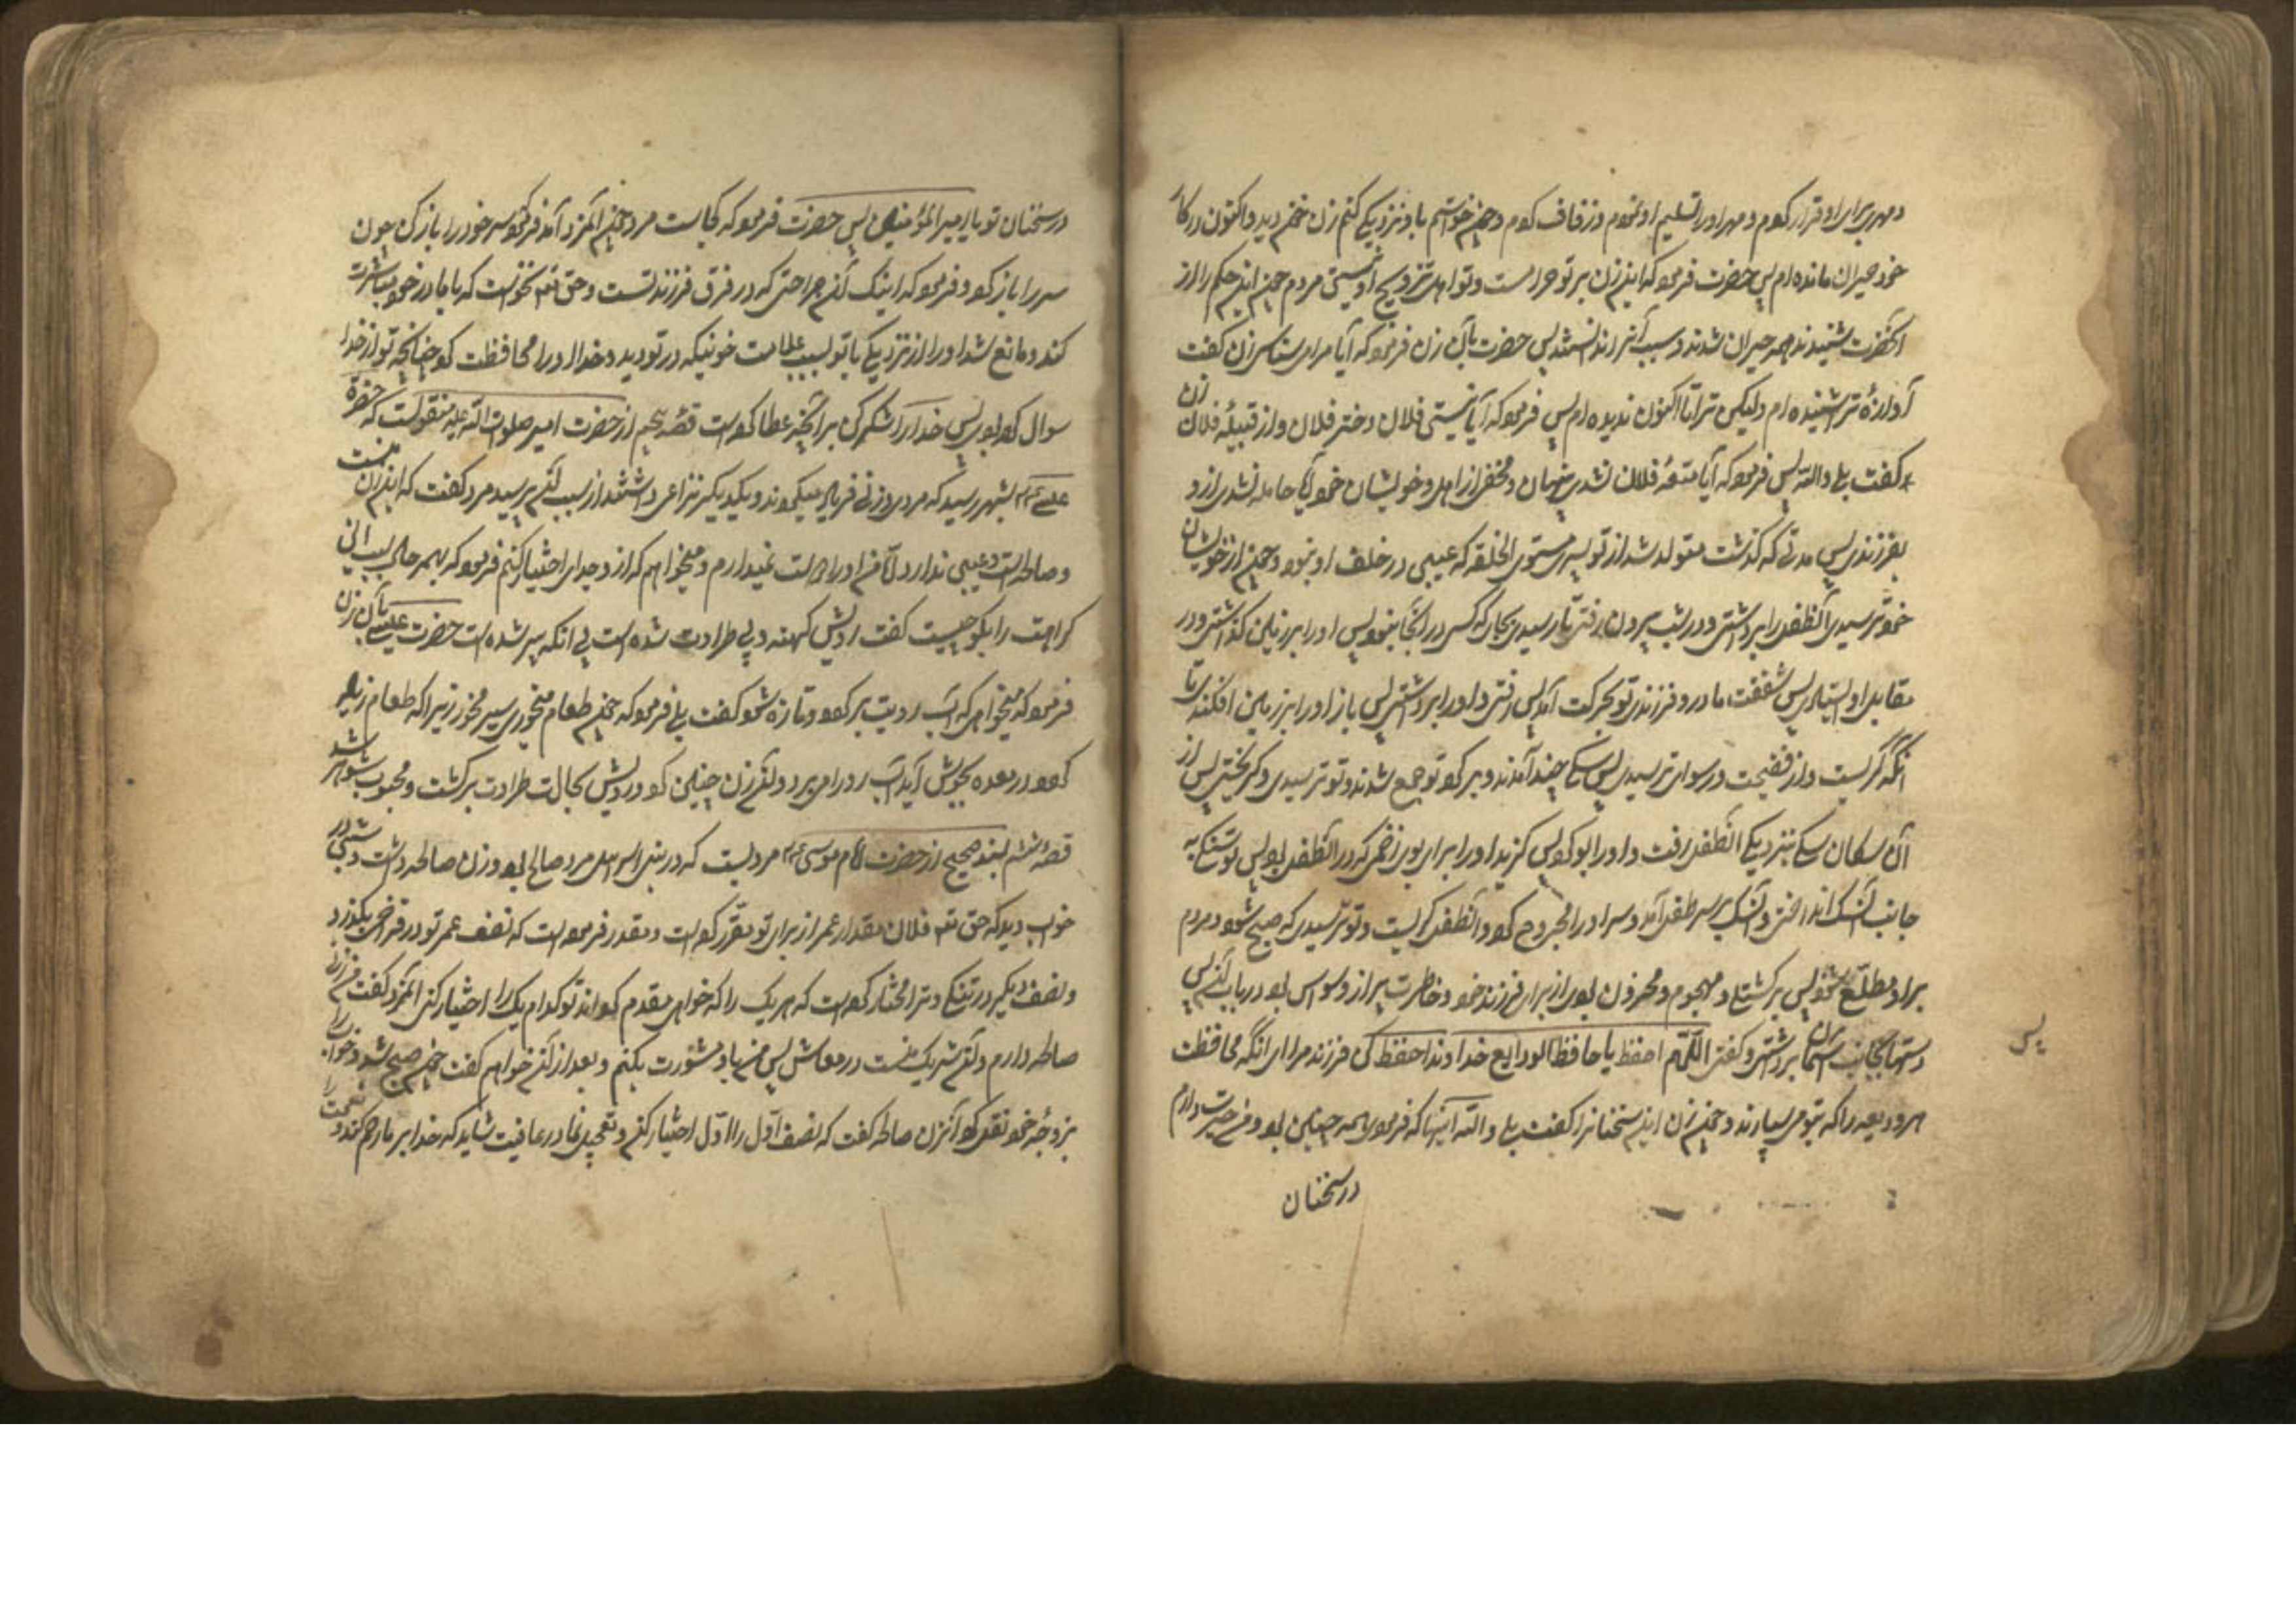 و مهر برای او قرار کردم و مهر او را تسلیم او نمودم و زفاف کردم و چون خواستم باو نزدیکی کنم زن خون دید و اکنون در کار
خود حیران مانده ام پس حضرت فرمود که این زن بر تو حرامست و تو اهل تزویج او نیستی مردم چون این حکم را از
آنحضرت شنیدند همه حیران شدند و سبب آنرا ندانستند پس حضرت بآن زن فرمود که آیا مرا میشناسی زن گفت
آوازهٔ ترا شنیده ام ولیکن ترا تا اکنون ندیده ام پس فرمود که آیا نیستی فلان زن دختر فلان و از قبیلهٔ فلان
گفت بلی والله پس فرمود که آیا متعهٔ فلان نشدی پنهان و مخفی از اهل و خویشان خود آیا حامله نشدی ازو
بفرزندی پس مدتی که گذشت متولد شد از تو پسری مستوی الخلقه که عیبی در خلقت او نبود و چون از خویشان
خود ترسیدی آنطفل را برداشتی و در شب بیرون رفتی تا رسیدی بجایی که کسی در آنجا نبود پس او را بر زمین گذاشتی و در
مقابل او ایستادی پس شفقت مادر و فرزندی تو بحرکت آمد پس رفتی و او را برداشتی پس باز او را بر زمین افکندی تا
آنکه گریست و از فضیحت و رسوایی ترسیدی پس سگی چند آمدند و بر گرد تو جمع شدند و تو ترسیدی و گریختی پس از
آن سگان سگی بنزدیکی آنطفل رفت و او را بو کرد پس گزید او را برای بوی زخمی که در آنطفل بود پس تو سنگی به
جانب آن سگ انداختی و آن سنگ بر سر طفل آمد و سر او را مجروح کرد و آنطفل گریست و تو ترسیدی که صبح شود و مردم
بر او مطلع شوند پس برگشتی و مهموم و محزون بودی از برای فرزند خود و خاطرت پر از وسواس بود در باب آن پس
دستها بجانب آسمان برداشتی و گفتی اللّهم احفظ یا حافظ الودایع خداوندا حفظ کن فرزند مرا ای آنکه محافظت
هر ودیعه را که بتو می سپارند و چون زن این سخنانرا گفت بلی والله اینها که فرمودی همه چنین بود و من حیرت دارم
در سخنان
پس
در سخنان تو یا امیر المؤمنین پس حضرت فرمود که کجاست مرد چون آنمرد آمد فرمود سر خود را باز کن چون
سر را باز کرد و فرمود که اینک آن جراحتی که در فرق فرزند تست و حق تعـ نخواست که با مادر خود مباشرت
کند و مانع شد او را از نزدیکی با تو بسبب علامت خونی که در تو دید و خدا او را محافظت کرد چنانچه تو از خدا
سوال کرده بودی پس خدا را شکر کن بر آنچه عطا کرده است قصهٔ پنجم از حضرت امیر صلوات الله علیه منقولست که حضرة
عیسی ع بشهری رسید که مردی و زنی فریاد میکردند و بیکدیگر نزاعی داشتند از سبب آن پرسید مرد گفت که این زن منست
و صالحه است و عیبی ندارد امّا من او را دوست نمیدارم و میخواهم که از او جدایی اختیار کنم فرمود که بهر حال سبب این
کراهت را بگو چیست گفت رویش کهنه و بی طراوت شده است بی آنکه پیر شده است حضرت عیسی بآن زن
فرمود که میخواهی که آب رویت برگردد و تازه شود گفت بلی فرمود که چون طعام میخوری سیر مخور زیرا که طعام زیاد
گردد در معده بجوش آید آب رو را می برد و آن زن چنین کرد و رویش بحالت طراوت برگشت و محبوب شوهر شد
قصهٔ ششم بسند صحیح از حضرت امام موسی ع مرویست که در بنی اسرائیل مرد صالحی بود و زن صالحه داشت و شبی در
خواب دید که حق تعـ فلان مقدار عمر از برای تو مقرّر کرده است و مقدر فرموده است که نصف عمر تو در فراخی بگذرد
و نصف دیگر در تنگی و ترا مختار کرده است که هر یک را که خواهی مقدم گرداند تو کدام یک را اختیار کنی آنمرد گفت من زن
صالحه دارم و آن شریک منست در معاش پس من باو مشورت بکنم و بعد از آن خواهم گفت چون صبح شد و خواب را
بزوجهٔ خود نقل کرد آنزن صالحه گفت که نصف اول را اوّل اختیار کن و تعجیل نما در عافیت شاید که خدا بر ما رحم کند و نعمت را